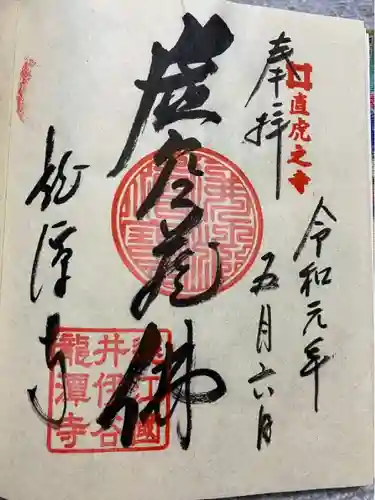 奉拝
直虎之寺
令和元年
五月六日
虚空蔵佛
龍潭寺
遠江國
井伊谷
龍潭寺